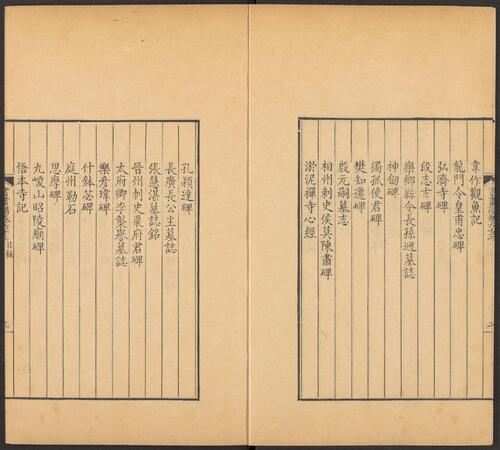 韋作觀魚記
龍門令皇甫忠碑
弘濟寺碑
段志玄碑
樂鄉縣令長孫迥墓誌
神劒碑
獨孤使君碑
樊知遷碑
殷元嗣墓志
相州刺史侯莫陳肅碑
淤泥禪寺心經
孔穎達碑
長廣長公主墓誌
張慧湛墓誌銘
晉州刺史裴府君碑
太府卿李襲譽墓誌
樂彥瑋碑
什鉢苾碑
庭州勒石
思摩碑
九嵕山昭陵廟碑
悟本寺記
目錄